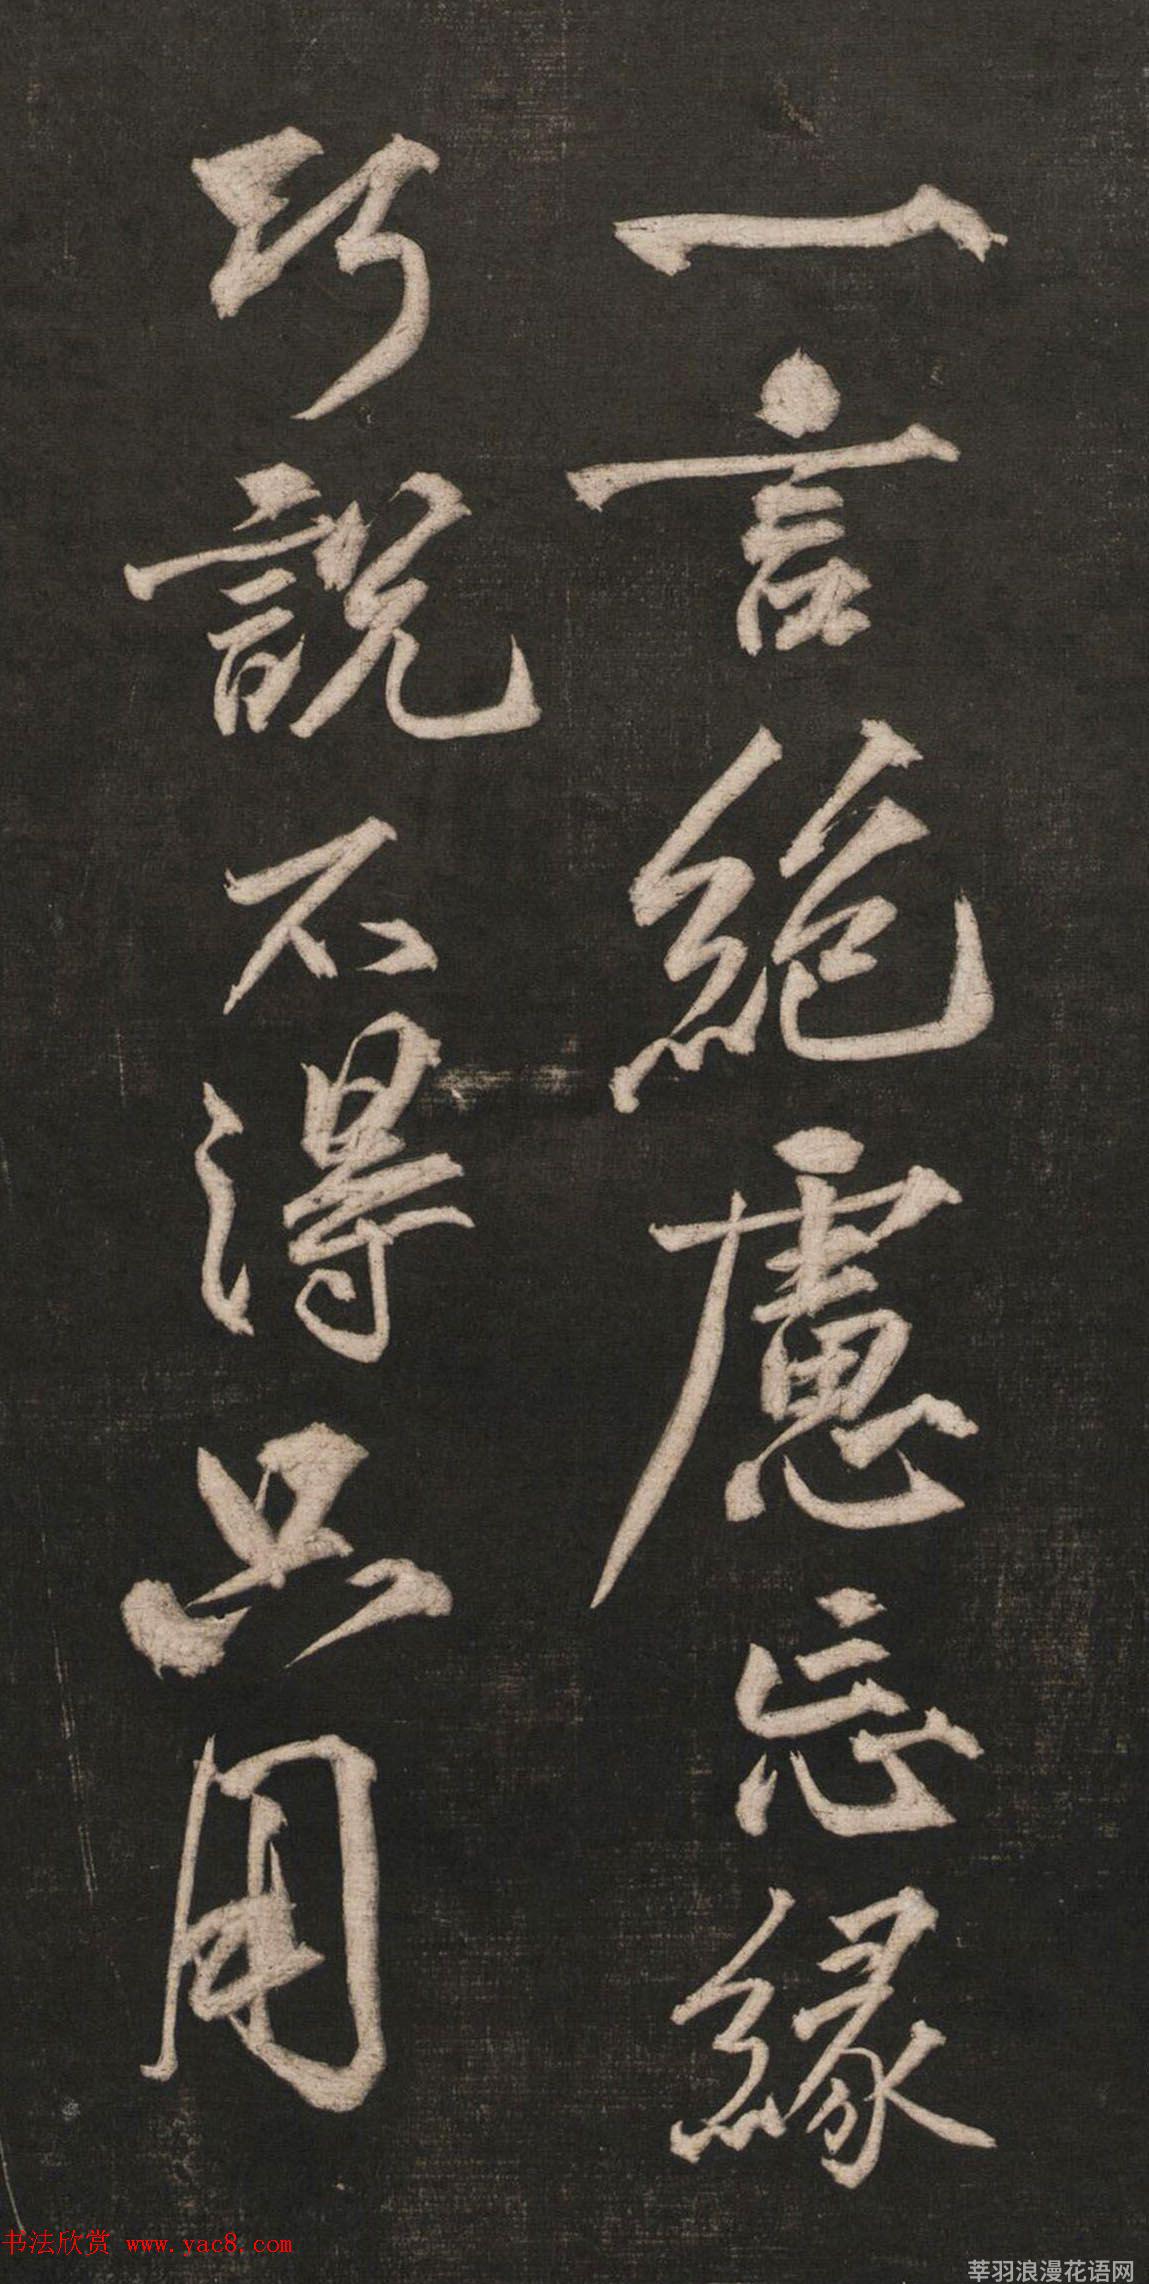 一言絶慮忘緣
巧說不得只用
书法欣赏 www.yac8.com
莘羽浪漫花语网